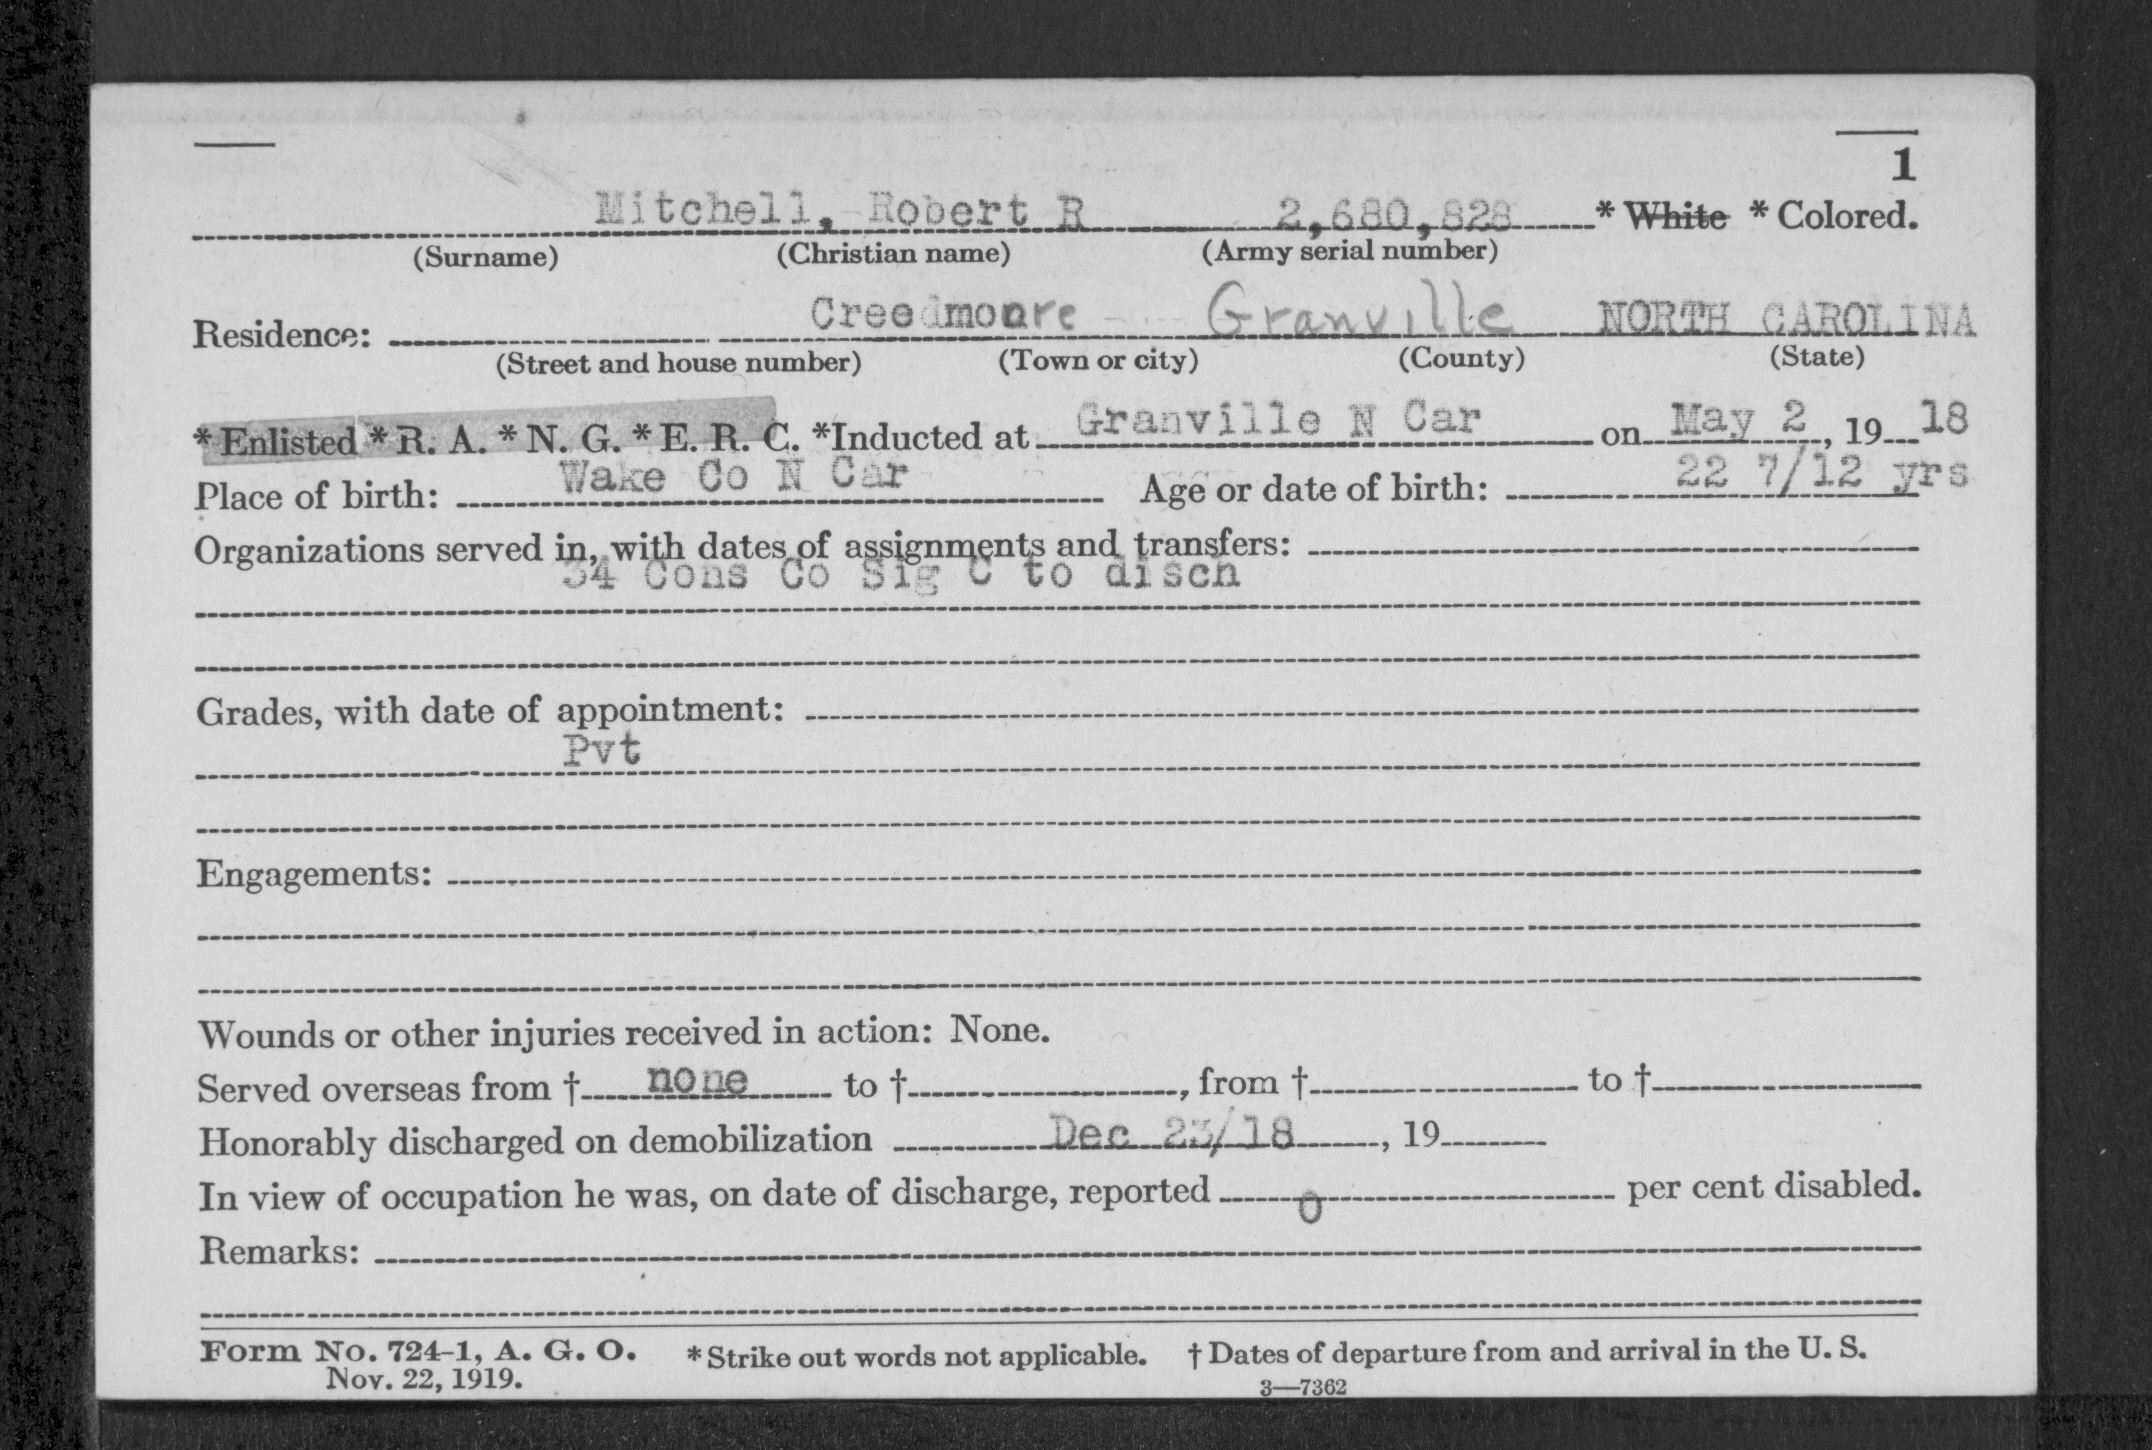 1
Mitchell, Robert R 2,680,828 * White * Colored.
(Surname) (Christian name) (Army serial number)
Residence: Creedmoore Granville NORTH CAROLINA
(Street and house number) (Town or city) (County) (State)
* Enlisted * R. A. * N. G. * E. R. C. *Inducted at Granville N Car on May 2, 19 18
Place of birth: Wake Co N Car Age or date of birth: 22 7/12 yrs
Organizations served in, with dates of assignments and transfers:
34 Cons Co Sig C to disch
Grades, with date of appointment:
Pvt
Engagements:
Wounds or other injuries received in action: None.
Served overseas from † none to †, from † to †
Honorably discharged on demobilization Dec 23/18, 19
In view of occupation he was, on date of discharge, reported 0 per cent disabled.
Remarks:
Form No. 724-1, A. G. O. * Strike out words not applicable. † Dates of departure from and arrival in the U. S.
Nov. 22, 1919. 3—7362